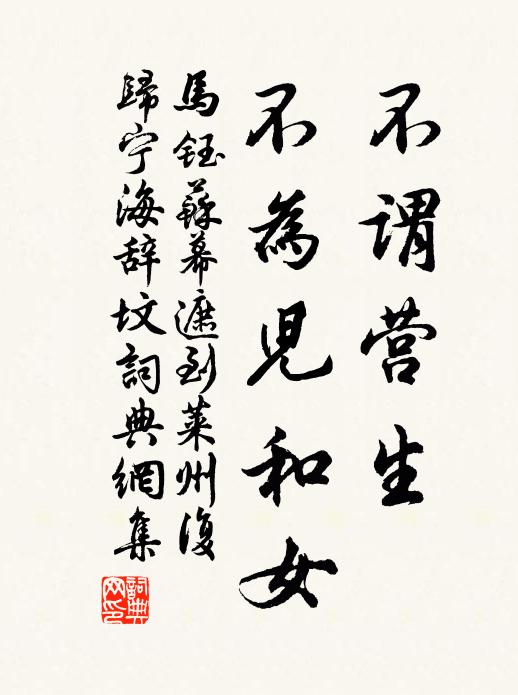 不谓营生
不為児和女
馬鈺蘇幕遮到萊州復
歸宁海辞坟詞典網集
詞典网印